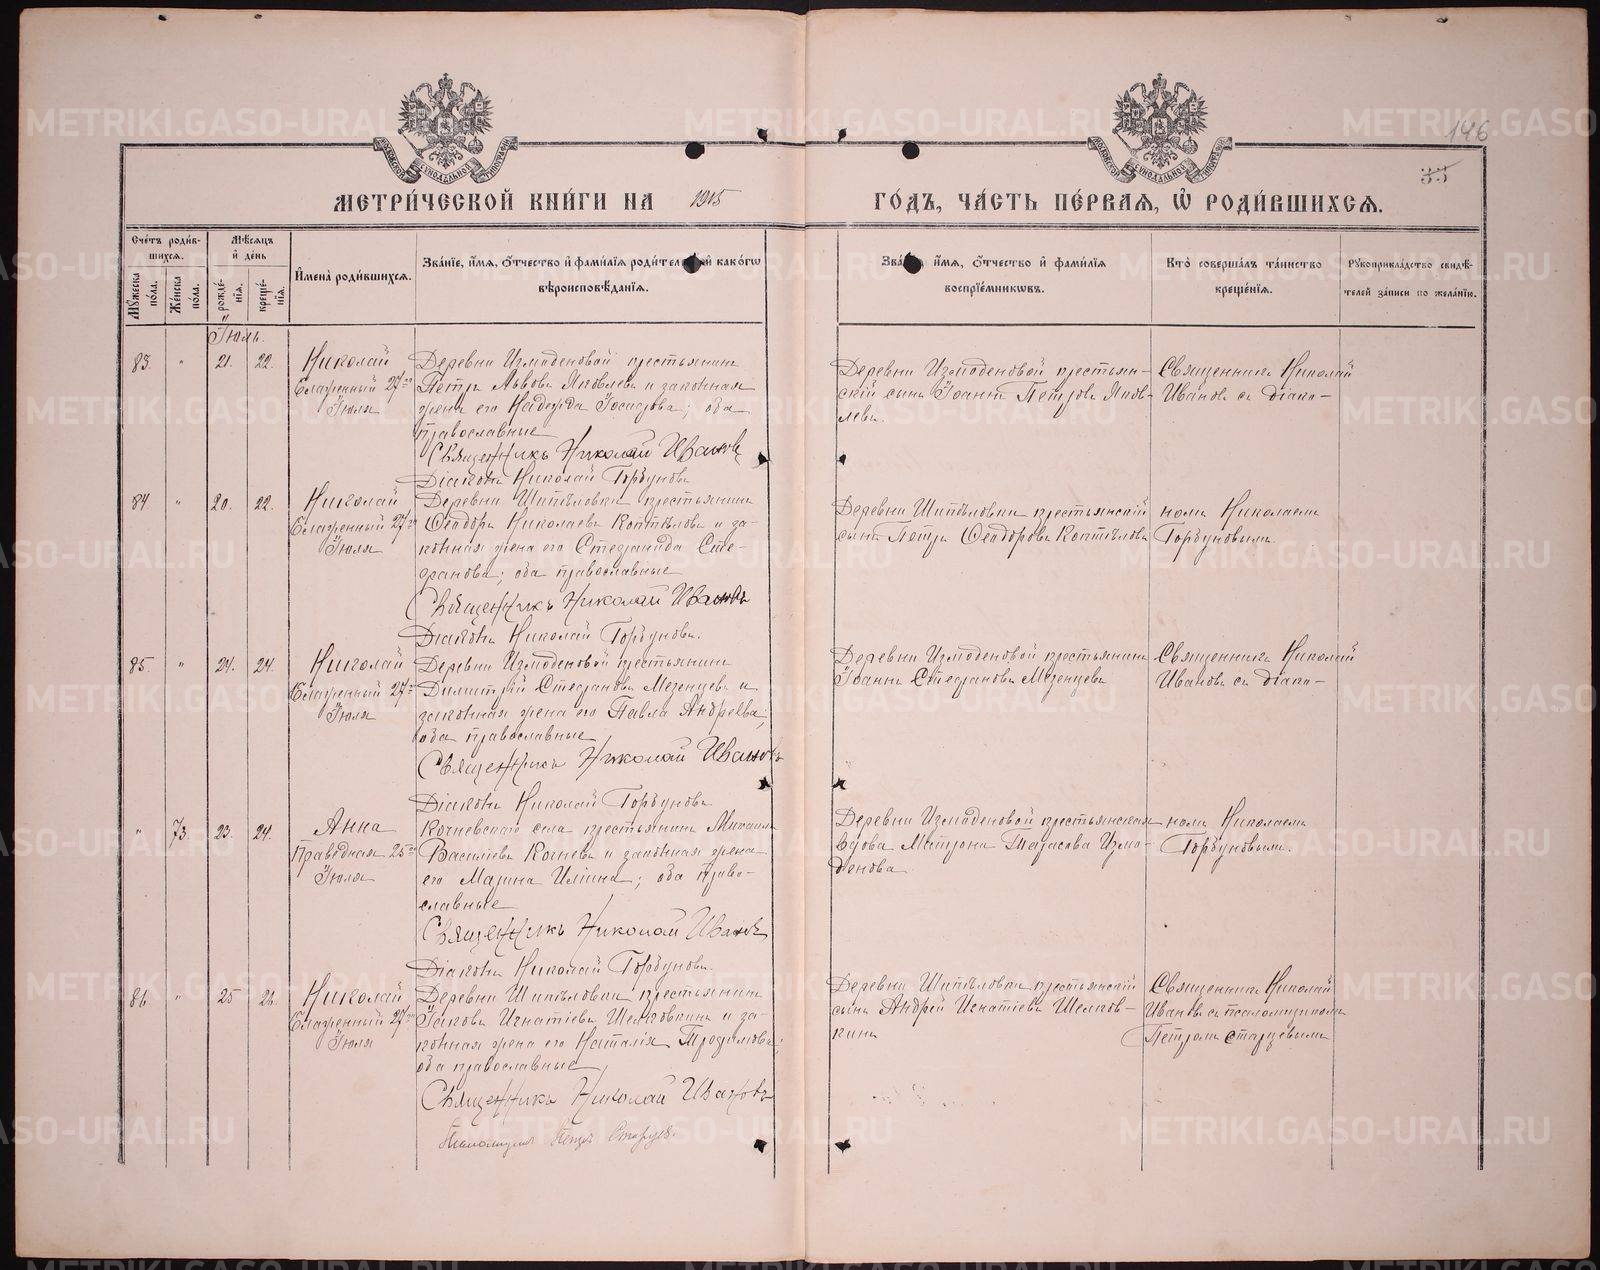 146
35
МЕТРИ́ЧЕСКОЙ КНИ́ГИ НА 1915 ГО́ДЪ, ЧА́СТЬ ПЕ́РВАЯ, Ѽ РОДИ́ВШИХСЯ.
Сче́тъ роди́в-
шихся.
Мѣ́сяцъ
и҆ де́нь
Мꙋ́жеска по́ла.
Же́нска по́ла.
рожде́-
нїя.
креще́-
нїя.
И҆мена̀ роди́вшихся.
Зва́нїе, и҆́мя, о҆́тчество и҆ фами́лїя роди́телей какогѡ
вѣроисповѣ́данїя.
Зва́нїе, и҆́мя, о҆́тчество и҆ фами́лїя
воспрїе́мниковъ.
Кто̀ соверша́лъ та́инство
креще́нїя.
Рꙋкоприкла́дство свидѣ́-
телей за́писи по жела́нїю.
Іюль.
83. " 21. 22.
Николай
Блаженный 27го
Іюля
Деревни Измоденовой крестьянинъ
Петръ Львовъ Яковлевъ и законная
жена его Надежда Іосифова; оба
православные
Священникъ Николай Ивановъ
Діаконъ Николай Горбуновъ
Деревни Измоденовой крестьян-
скій сынъ Іоаннъ Петровъ Яков-
левъ.
Священникъ Николай
Ивановъ съ діако-
84 " 20. 22.
Николай
Блаженный 27го
Іюля
Деревни Шипѣловки крестьянинъ
Ѳеодоръ Николаевъ Коптѣловъ и за-
конная жена его Стефанида Сте-
фанова; оба православные
Священникъ Николай Ивановъ
Діаконъ Николай Горбуновъ.
Деревни Шипѣловки крестьянскій
сынъ Петръ Ѳеодоровъ Коптѣловъ
номъ Николаемъ
Горбуновымъ.
85. " 24. 24.
Николай
Блаженный 27го
Іюля
Деревни Измоденовой крестьянинъ
Димитрій Стефановъ Мезенцевъ и
законная жена его Павла Андреева;
оба православные
Священникъ Николай Ивановъ
Діаконъ Николай Горбуновъ
Деревни Измоденовой крестьянинъ
Іоаннъ Стефановъ Мезенцевъ
Священникъ Николай
Ивановъ съ діако-
" 73. 23. 24.
Анна
Праведная 25го
Іюля
Кочневскаго села крестьянинъ Михаилъ
Василіевъ Кочневъ и законная жена
его Марина Иліина; оба право-
славные
Священникъ Николай Ивановъ
Діаконъ Николай Горбуновъ.
Деревни Измоденовой крестьянская
вдова Матрона Тарасова Измо-
денова
номъ Николаемъ
Горбуновымъ.
86. " 25 26.
Николай
Блаженный 27го
Іюля
Деревни Шипѣловки крестьянинъ
Іаковъ Игнатіевъ Шелковкинъ и за-
конная жена его Наталія Трофимова;
оба православные
Священникъ Николай Ивановъ
Псаломщикъ Петръ Старцевъ.
Деревни Шипѣловки крестьянскій
сынъ Андрей Игнатіевъ Шелков-
кинъ
Священникъ Николай
Ивановъ съ псаломщикомъ
Петромъ Старцевымъ
METRIKI.GASO-URAL.RU